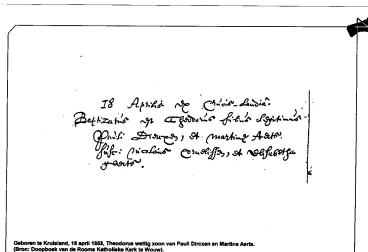 18 Aprilis ex Crucis-landia.
Baptizatus est Theodorus filius legitimus
Pauli Dircxen, et Martinæ Aerts.
susc: Nicolaus Cornelissen, et Elisabetha
Geboren te Kruisland, 18 april 1653, Theodorus wettig zoon van Pauli Dircxen en Martina Aerts.
(Bron: Doopboek van de Rooms Katholieke Kerk te Wouw).